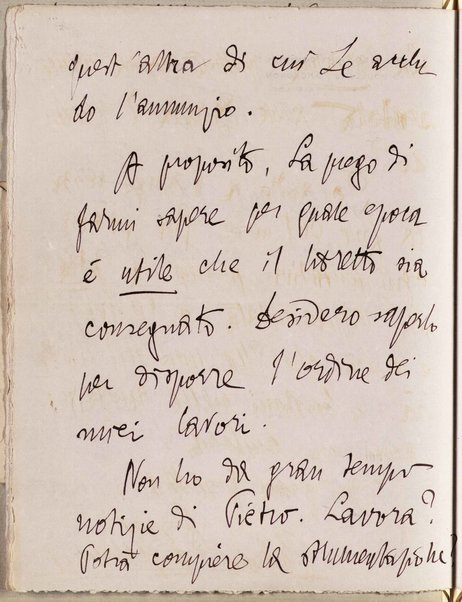 quest'altra di cui Le acclu
do l'annunzio.
A proposito, La prego di
farmi sapere per quale epoca
è utile che il libretto sia
consegnato. Desidero saperlo
per disporre l'ordine dei
miei lavori.
Non ho da gran tempo
notizie di Pietro. Lavora?
Potrà compiere la strumentazione?